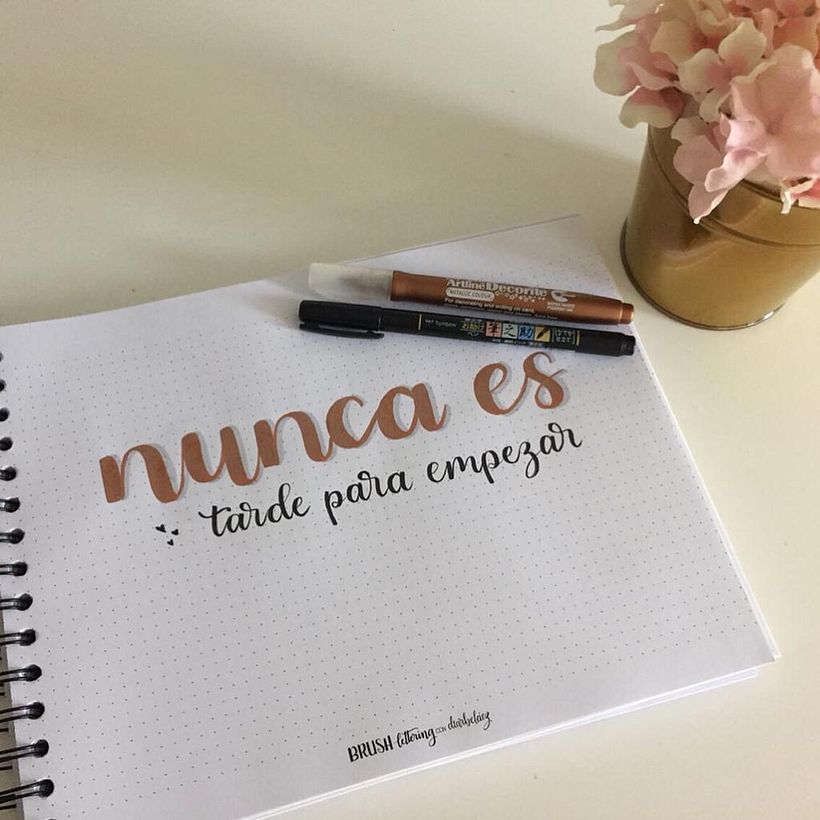 Artline Decorite
METALLIC COLOUR
For decorating and writing on cards
TOMBOW
筆之助
nunca es
tarde para empezar
BRUSH lettering CON diarbeláez